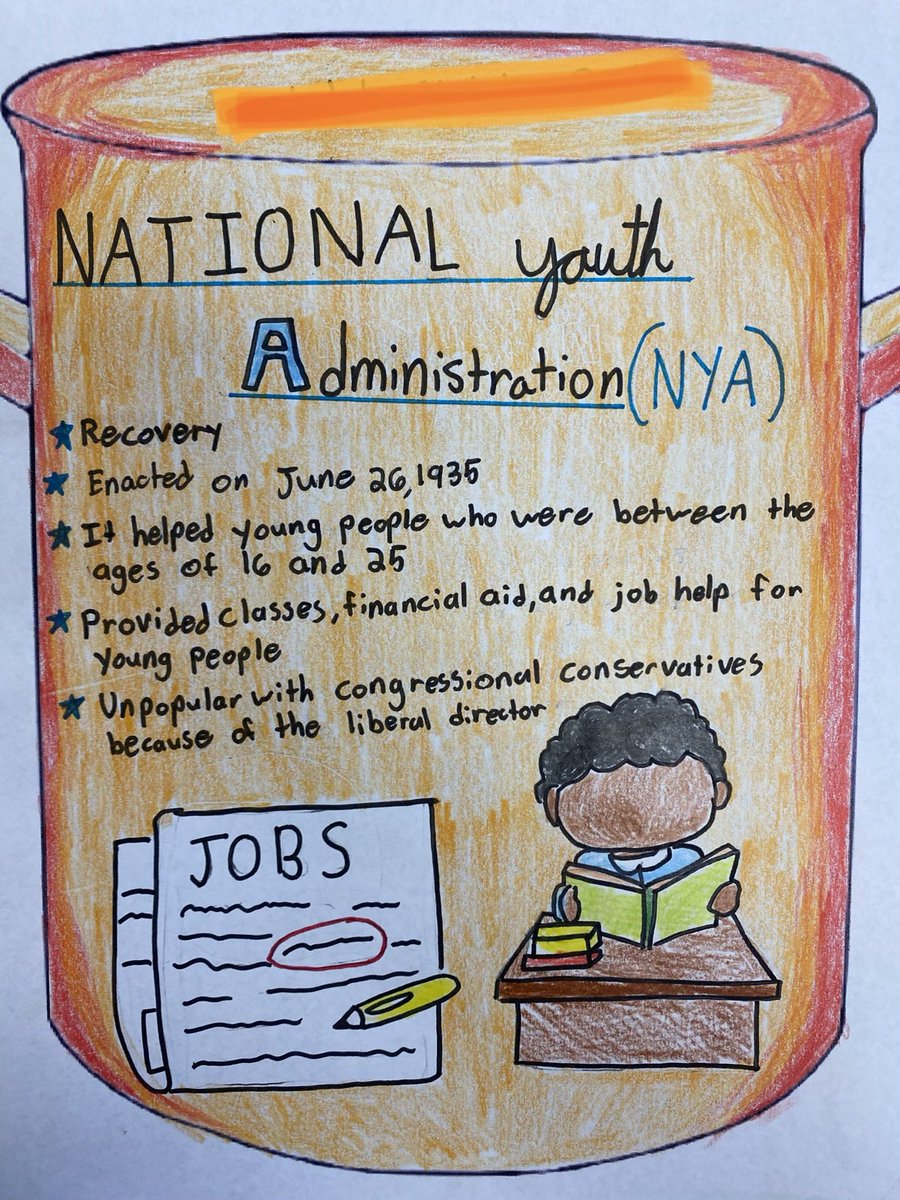 NATIONAL youth
Administration (NYA)
Recovery
Enacted on June 26, 1935
It helped young people who were between the
ages of 16 and 25
Provided classes, financial aid, and job help for
young people
Unpopular with congressional conservatives
because of the liberal director
JOBS